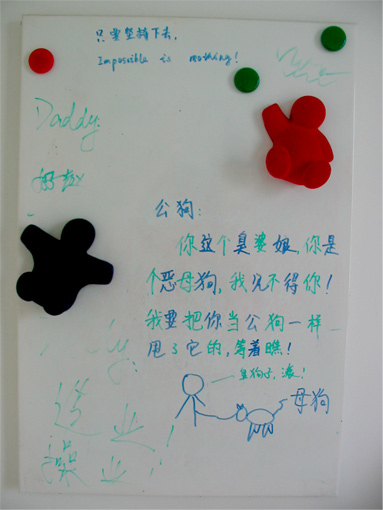 只要坚持下去,
Impossible is nothing!
Daddy
公狗:
你这个臭婆娘,你是
个恶母狗,我见不得你!
我要把你当公狗一样
甩了它的,等着瞧!
臭狗子,滚!
母狗
造业!
操业!